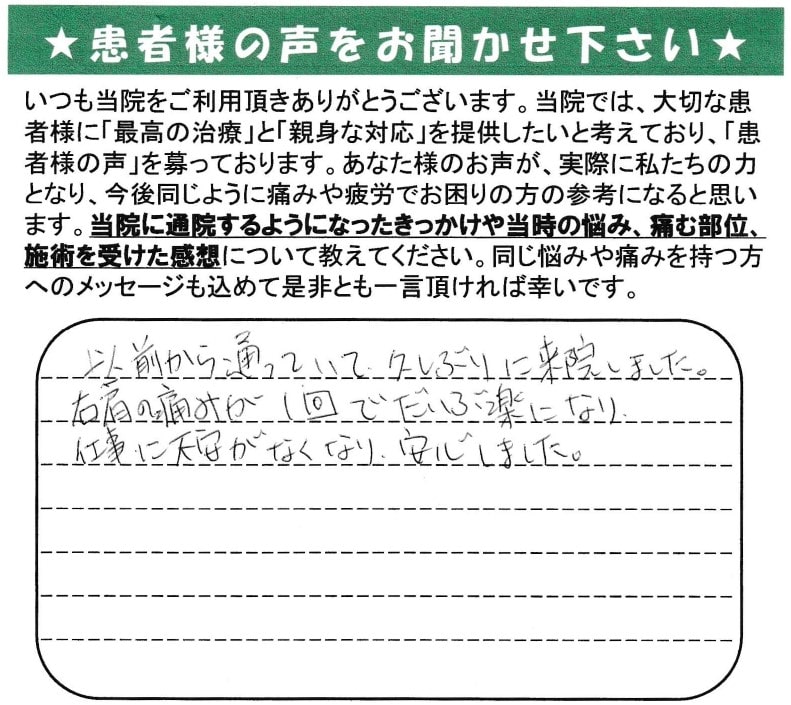 ★患者様の声をお聞かせ下さい★
いつも当院をご利用頂きありがとうございます。当院では、大切な患
者様に「最高の治療」と「親身な対応」を提供したいと考えており、「患
者様の声」を募っております。あなた様のお声が、実際に私たちの力
となり、今後同じように痛みや疲労でお困りの方の参考になると思い
ます。当院に通院するようになったきっかけや当時の悩み、痛む部位、
施術を受けた感想について教えてください。同じ悩みや痛みを持つ方
へのメッセージも込めて是非とも一言頂ければ幸いです。
以前から通っていて、久しぶりに来院しました。
右肩の痛みが1回でだいぶ楽になり、
仕事に支障がなくなり、安心しました。